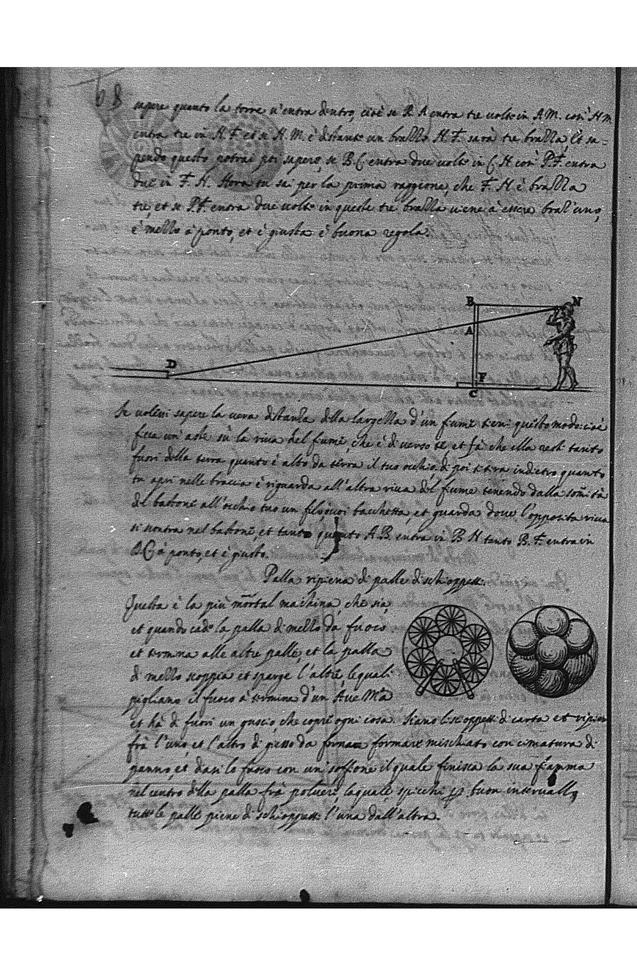 68
sapere quanto la torre u'entra dentro, cioè se R A entra tre volte in A M. cosi H M
entra tre in H F. et se H. M. è distante un brallo H. F. sarà tre bralla, Et sa-
pendo questo potrai poi sapere, se B. C. entra due volte in C. H. con' P. F. entra
due in F. H. Hora tu sai per la prima raggione, che F. H. è bralla
tre, et se P. F. entra due volte in queste tre bralla viene à essere bral. uno,
è mello à ponto, et è giusta è buona regola.
B N
A
D
F
C
Se volevi sapere la vera distanza della largella d'un fiume tieni questo modo: cioè
ficca un' aste sù la riva del fiume, che è di verso te, et fà che ella resti tanto
fuori della terra quanto è alto da terra il tuo occhio, di poi tira indietro quanto
tu apri nelle braccia è riguarda all'altra riva del fiume tenendo dalla somità
del bastone all'occhio tuo un filo, tacchetta, et guarda dove l'opposita riva
ti mostra nel bastone, et tanto quanto A. B. entra in B. H tanto B. F. entra in
B. C. à ponto, et è giusto.
Palla ripiena di palle di schioppetti.
Questa è la più mortal machina, che sia,
et quando cade la palla di mello dà fuoco
et termina alle altre palle, et la palla
di mello scoppia et sparge l'altre, le quali
pigliano il fuoco à termine d'un Ave Ma
et hà di fuori un guscio, che copre ogni cosa. Siano li scoppetti di carta et ripieni
frà l'uno et l'altro di gisso da formare mischiato con cimatura di
panno, et dasi lo fuoco con un soffione il quale finisca la sua fiamma
nel centro della palla frà polvere la quale spicchi p buon intervallo
tutte le palle piene di schioppetti l'una dall'altra.